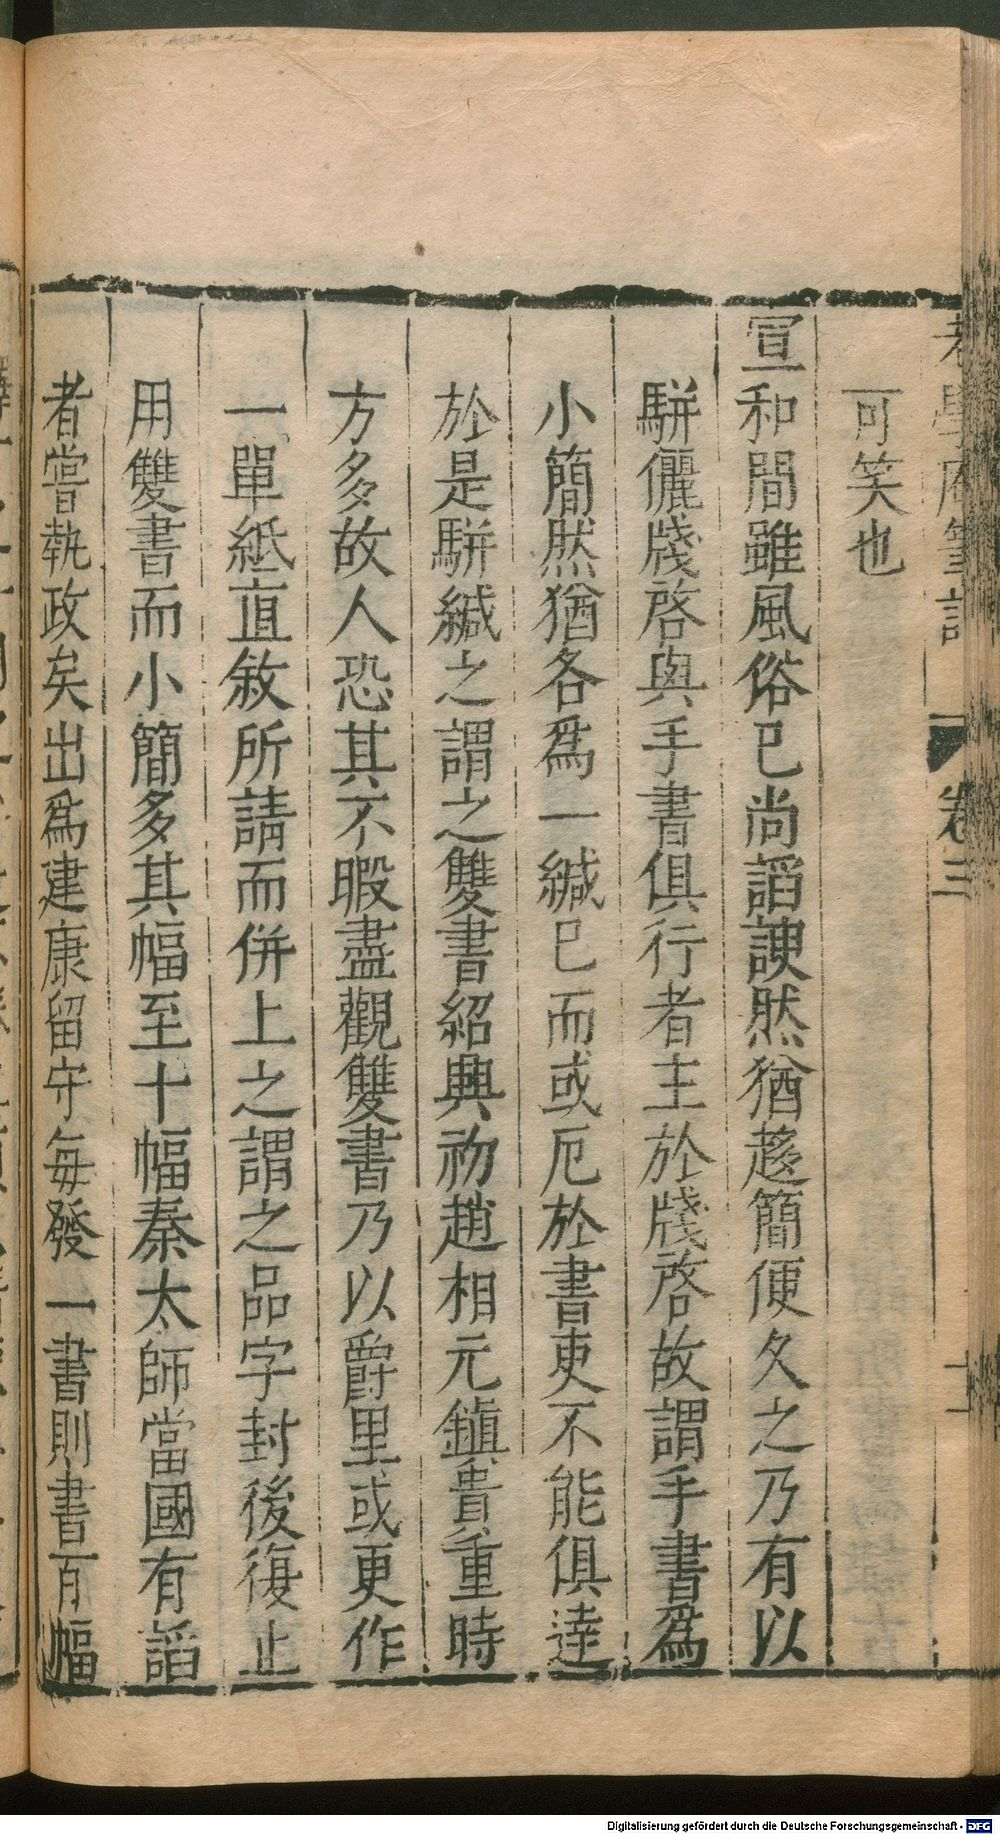 老學庵筆記 卷三 十一
可笑也
宣和間雖風俗已尚諂諛然猶趍簡便久之乃有以
駢儷牋啓與手書俱行者主於牋啓故謂手書爲
小簡然猶各爲一緘已而或厄於書吏不能俱達
於是駢緘之謂之雙書紹興初趙相元鎮貴重時
方多故人恐其不暇盡觀雙書乃以爵里或更作
一單紙直敘所請而併上之謂之品字封後復止
用雙書而小簡多其幅至十幅秦太師當國有諂
者嘗執政矣出爲建康留守每發一書則書百幅
Digitalisierung gefördert durch die Deutsche Forschungsgemeinschaft - DFG